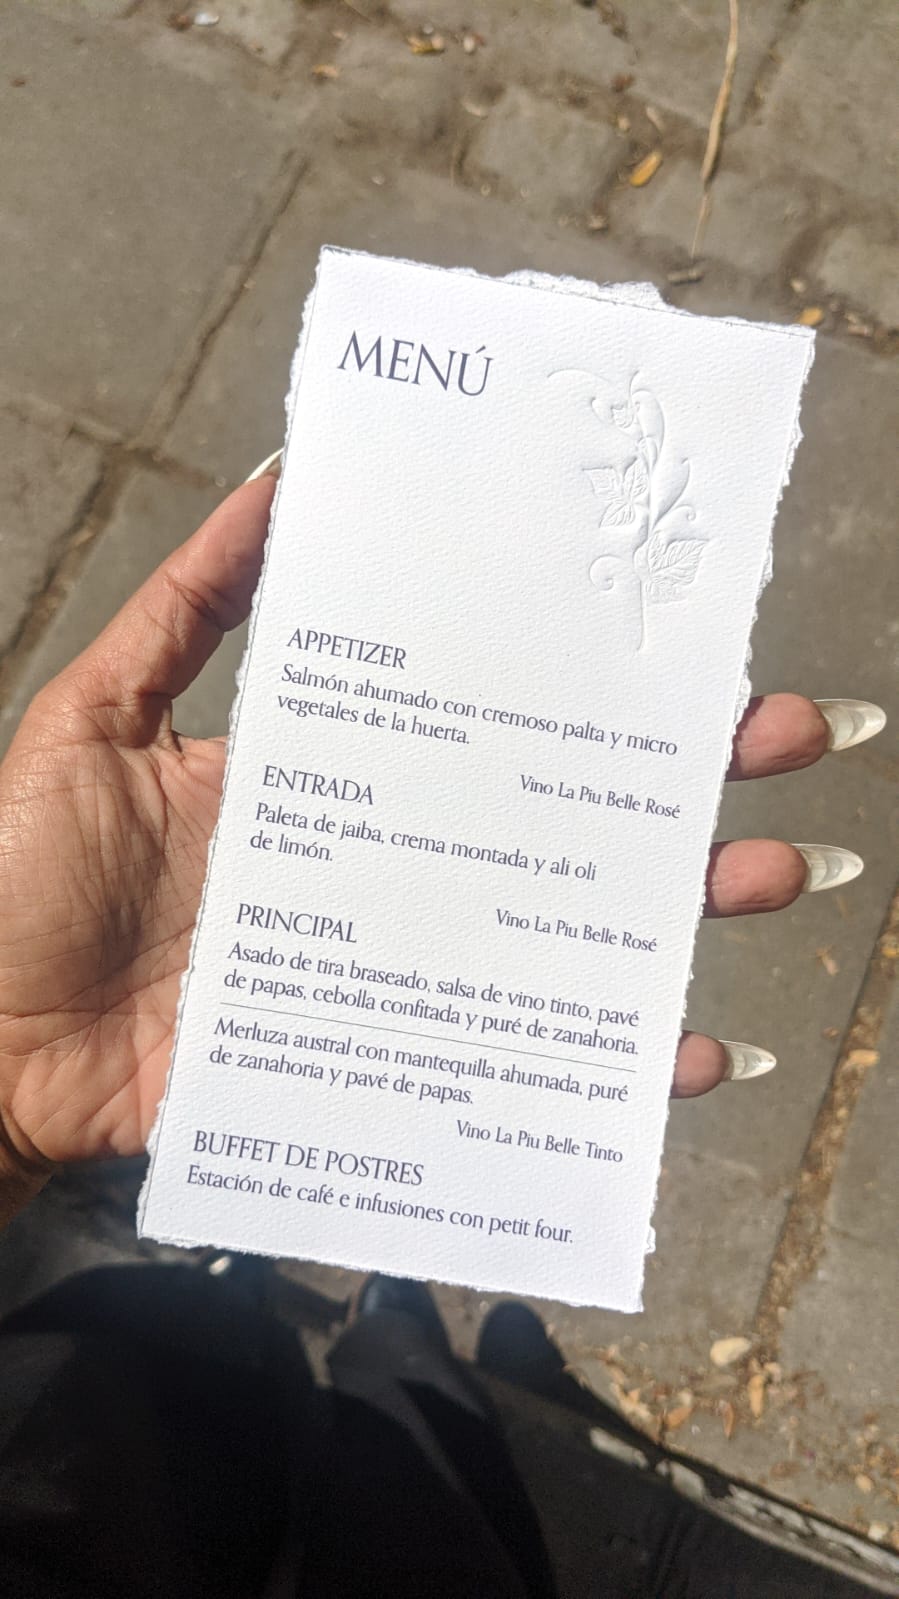 MENÚ
APPETIZER
Salmón ahumado con cremoso palta y micro
vegetales de la huerta.
Vino La Piu Belle Rosé
ENTRADA
Paleta de jaiba, crema montada y ali oli
de limón.
Vino La Piu Belle Rosé
PRINCIPAL
Asado de tira braseado, salsa de vino tinto, pavé
de papas, cebolla confitada y puré de zanahoria.
Merluza austral con mantequilla ahumada, puré
de zanahoria y pavé de papas.
Vino La Piu Belle Tinto
BUFFET DE POSTRES
Estación de café e infusiones con petit four.